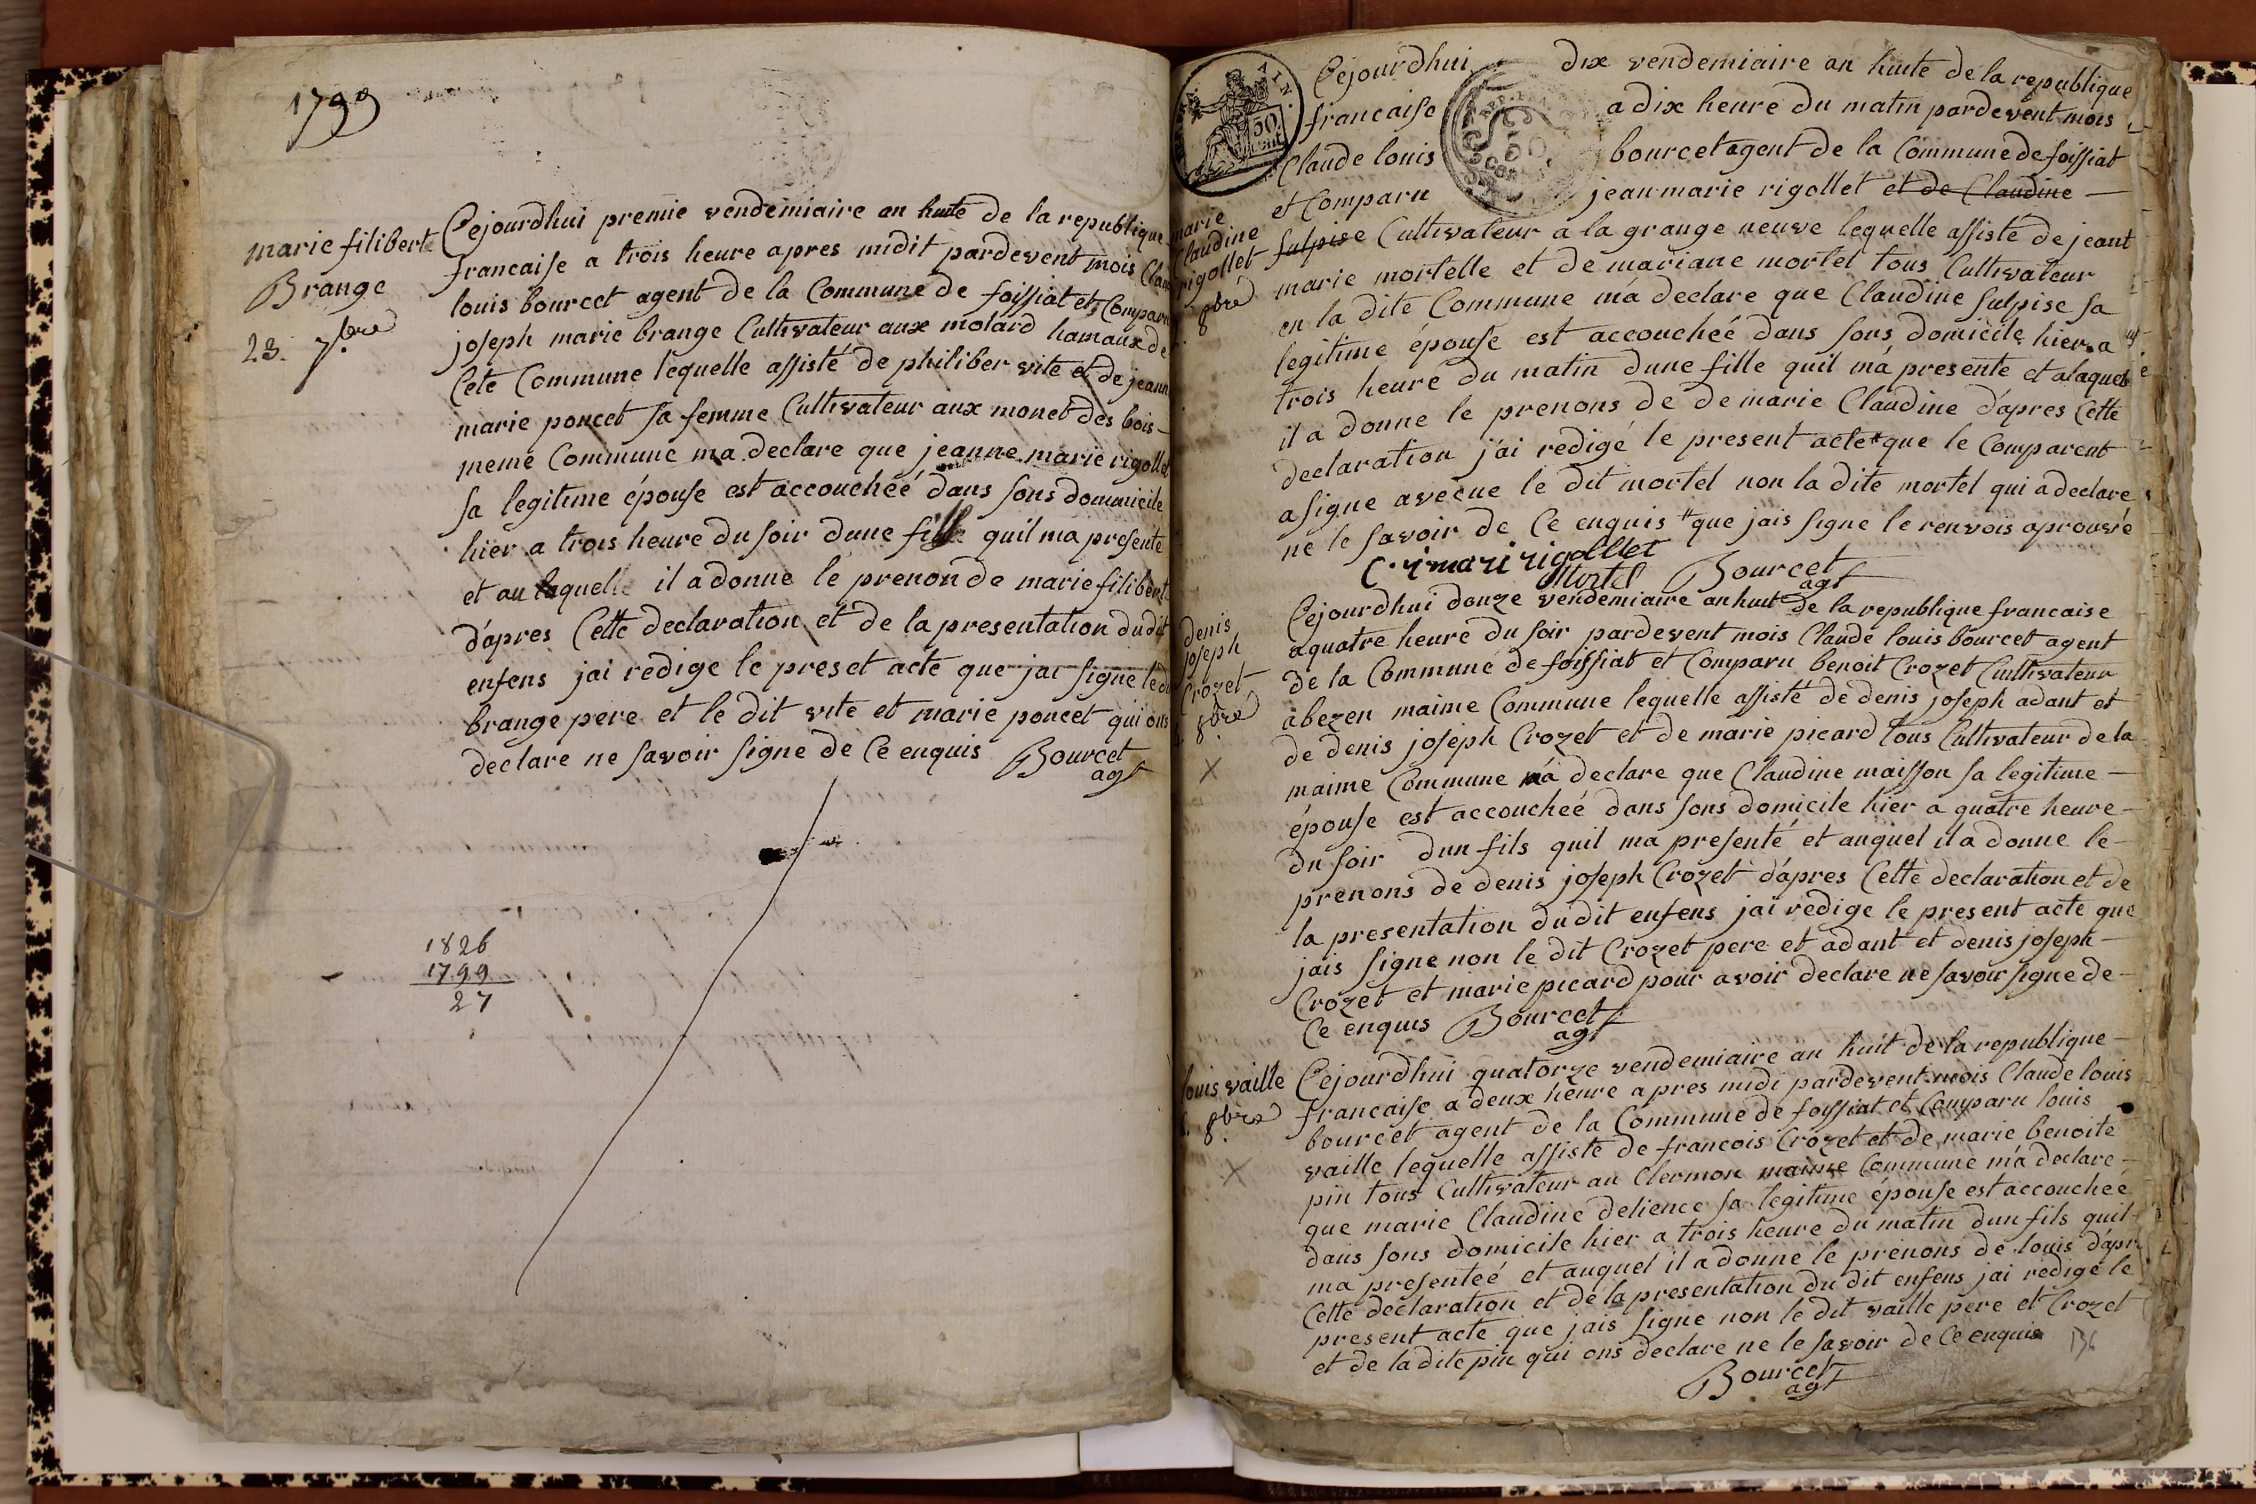 1799
marie filibert
Brange
23. 7.bre
Cejourdhui premie vendemiaire an huite de la republique
francaise a trois heure apres midit pardevent mois Clau
louis bourcet agent de la Commune de foissiat et Comparu
joseph marie brange Cultivateur aux molard hamaux de
Cete Commune lequelle assisté de philiber vite et de jeann
marie poncet sa femme Cultivateur aux monet des bois
meme Commune ma declare que jeanne marie rigollet
sa legitime épouse est accoucheé dans sons domicile
hier a trois heure du soir dune fille quil ma presente
et au laquelle il a donne le prenon de marie filibert
d'apres Cette declaration et de la presentation du dit
enfens jai redige le preset acte que jai signe le
brange pere et le dit vite et marie poncet qui ons
declare ne savoir signe de Ce enquis Bourcet
agt
1826
1799
27
AIN.
50
Cejourdhui dix vendemiaire an huite de la republique
francaise a dix heure du matin pardevent mois
Claude louis bourcet agent de la Commune de foissiat
et Comparu jean marie rigollet et de Claudine
marie
Claudine
rigollet
8bre
sulpise Cultivateur a la grange neuve lequelle assisté de jeant
marie mortelle et de mariane mortel tous Cultivateur
en la dite Commune m'a declare que Claudine sulpise sa
legitime épouse est accoucheé dans sons domicile hier a
trois heure du matin dune fille quil m'a presente et alaquele
il a donne le prenons de de marie Claudine d'apres Cette
declaration j'ai redigé le present acte # que le Comparent
a signe avecue le dit mortel non la dite mortel qui a declare
ne le savoir de Ce enquis # que jais signe le renvois aprouvé
C. j mari rigolllet
Mortel Bourcet
agt
denis
joseph
Crozet
8.bre
X
Cejourdhui douze vendemiaire an huit de la republique francaise
a quatre heure du soir pardevent mois Claude louis bourcet agent
de la Commune de foissiat et Comparu benoit Crozet Cultivateur
a bezen maime Commune lequelle assisté de denis joseph adant et
de denis joseph Crozet et de marie picard tous Cultivateur de la
maime Commune m'a declare que Claudine maisson sa legitime
épouse est accoucheé dans sons domicile hier a quatre heure
du soir dun fils quil ma presenté et auquel il a donne le
prenons de denis joseph Crozet d'apres Cette declaration et de
la presentation du dit enfens jai redige le present acte que
jais signe non le dit Crozet pere et adant et denis joseph
Crozet et marie picard pour avoir declare ne savoir signe de
Ce enquis Bourcet
agt
louis vaille
8.bre
X
Cejourdhui quatorze vendemiaire an huit de la republique
francaise a deux heure apres midi pardevent mois Claude louis
bourcet agent de la Commune de foissiat et Comparu louis
vaille lequelle assiste de francois Crozet et de marie benoite
pin tous Cultivateur au Clermon maime Commune m'a declare
que marie Claudine delience sa legitime épouse est accoucheé
dans sons domicile hier a trois heure du matin dun fils quil
ma presenteé et auquel il a donne le prenons de louis d'apr
Cette declaration et de la presentation du dit enfens jai redige le
present acte que jais signe non le dit vaille pere et Crozet
et de la dite pin qui ons declare ne le savoir de Ce enquis
136
Bourcet
agt